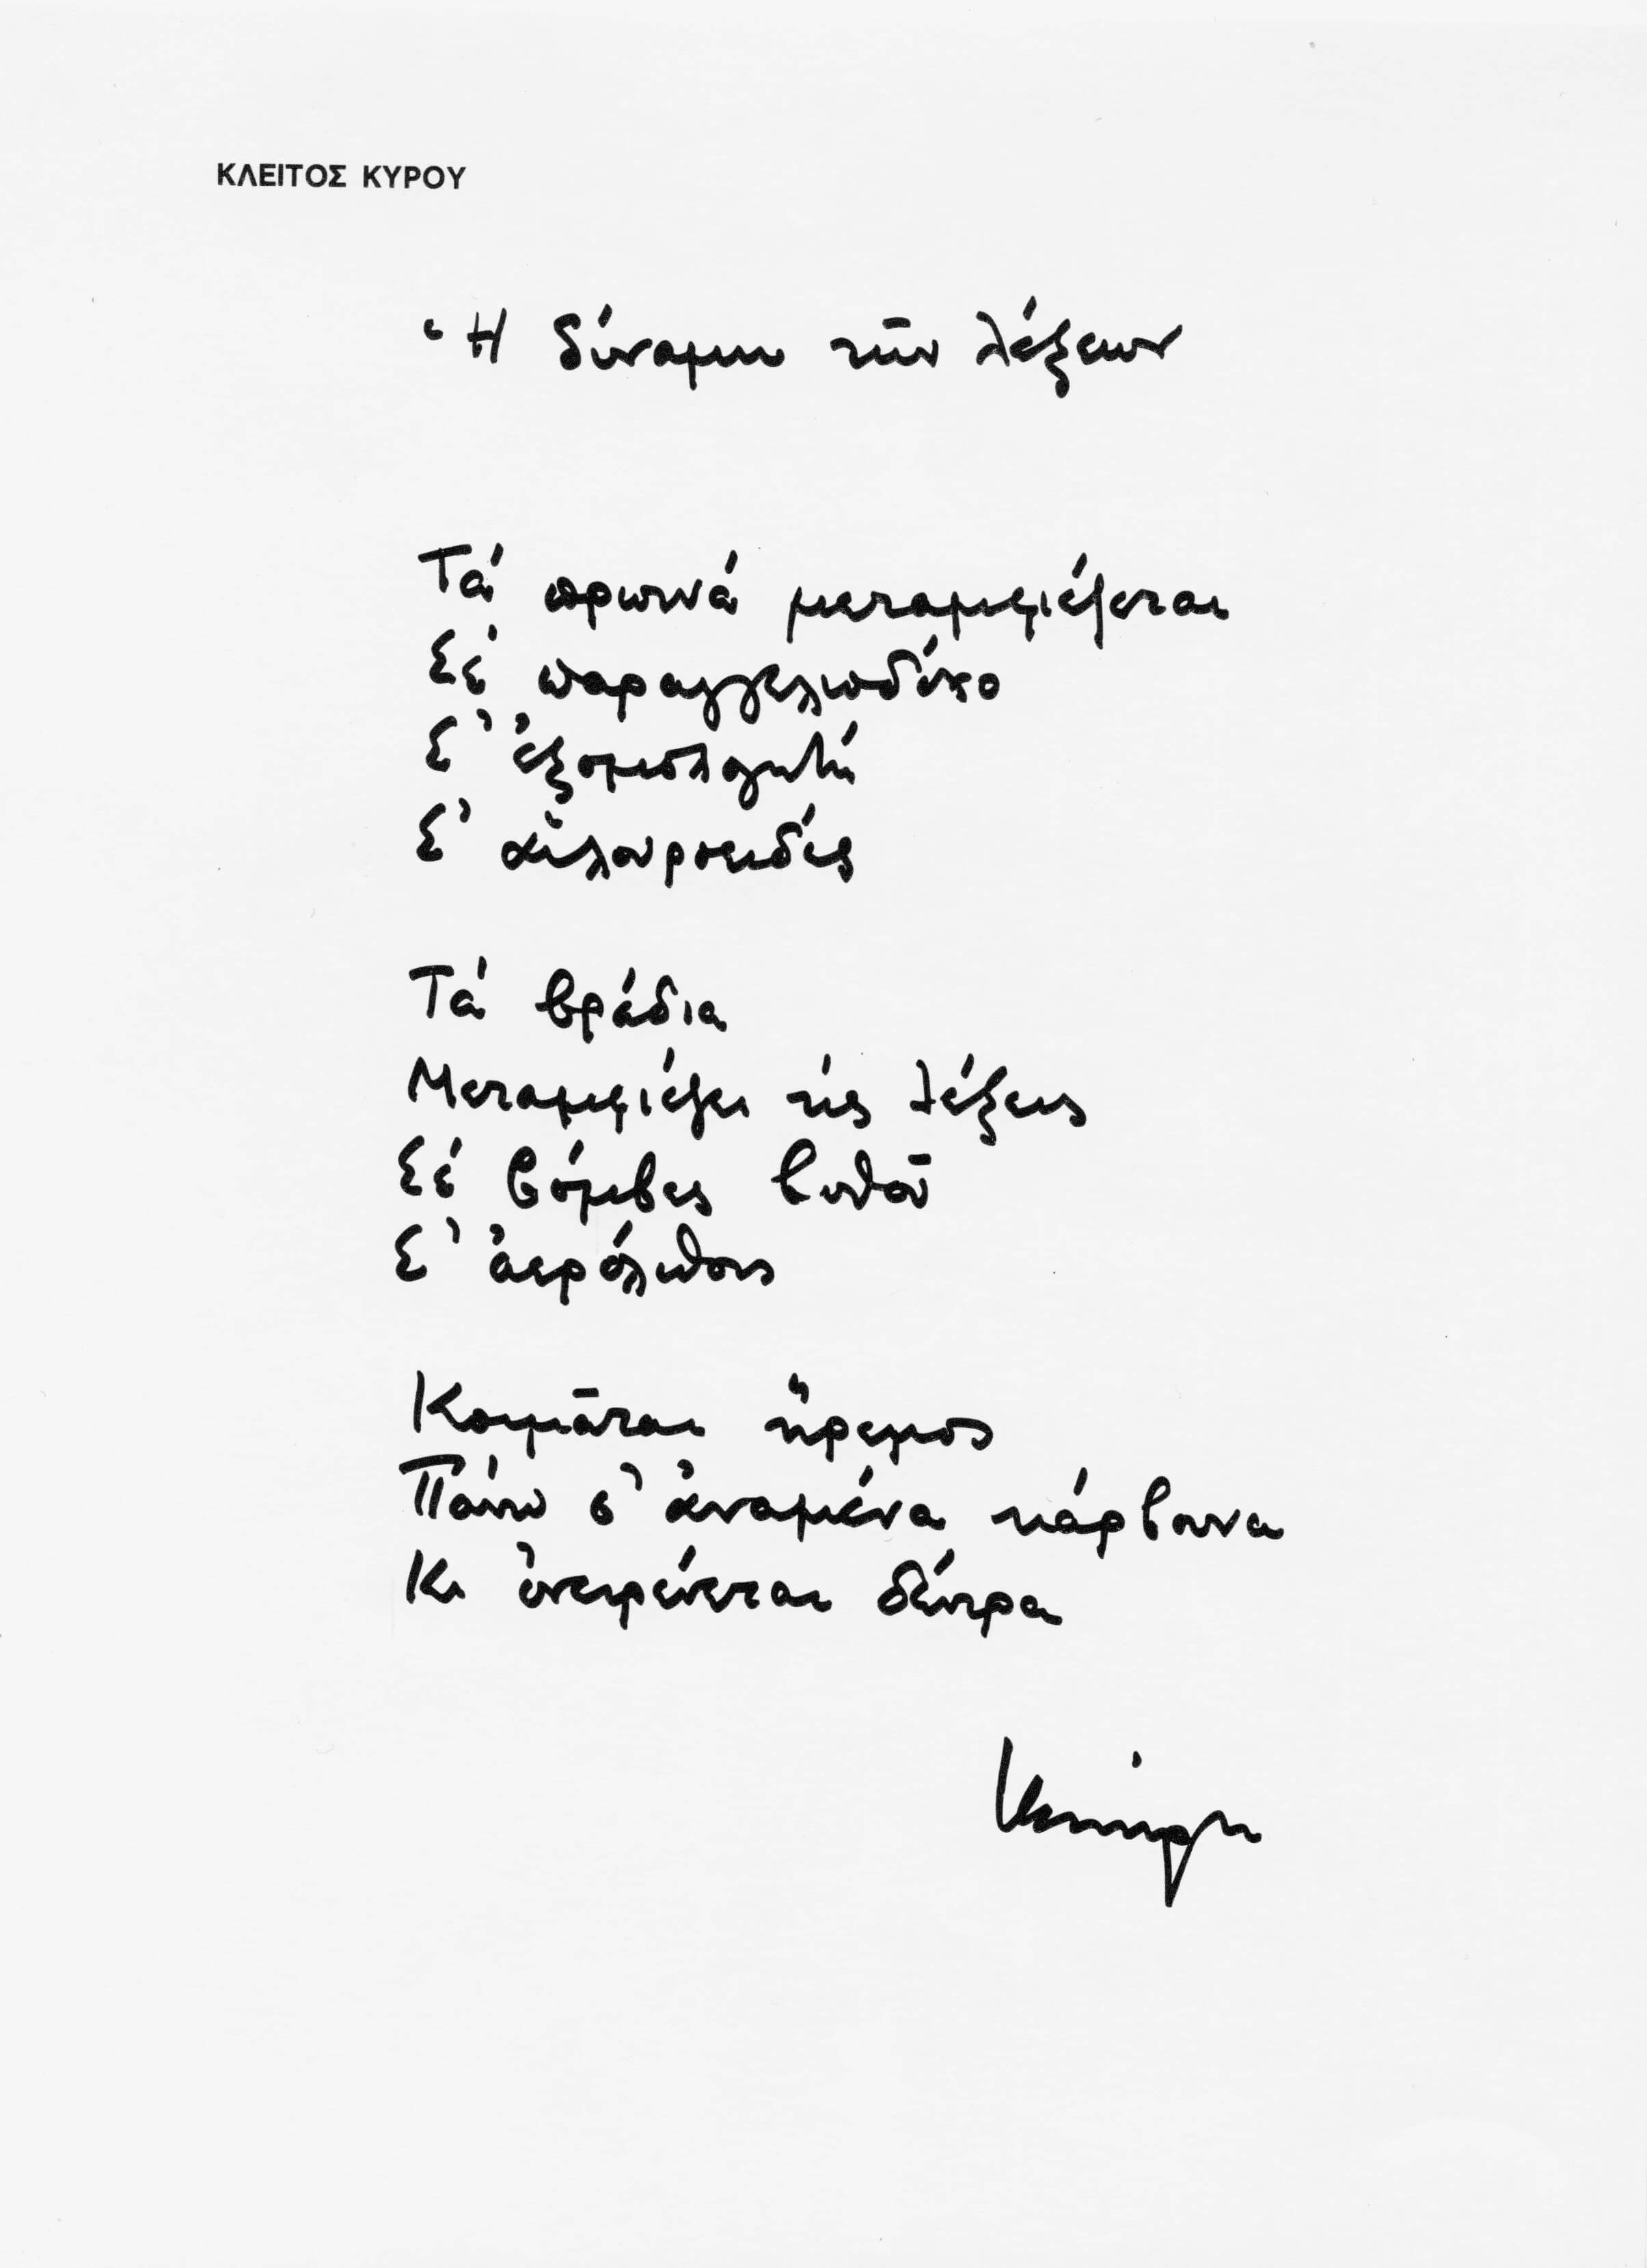 ΚΛΕΙΤΟΣ ΚΥΡΟΥ
Ἡ δύναμη τῶν λέξεων
Τά πρωινά μεταμφιέζεται
Σέ παραγγελιοδόχο
Σ' ἐξομολογητή
Σ' αἰλουροειδές
Τά βράδια
Μεταμφιέζει τίς λέξεις
Σέ βόμβες βυθοῦ
Σ' ἀερόλιθους
Κοιμᾶται ἥρεμος
Πάνω σ' ἀναμένα κάρβουνα
Κι ὀνειρεύεται δέντρα